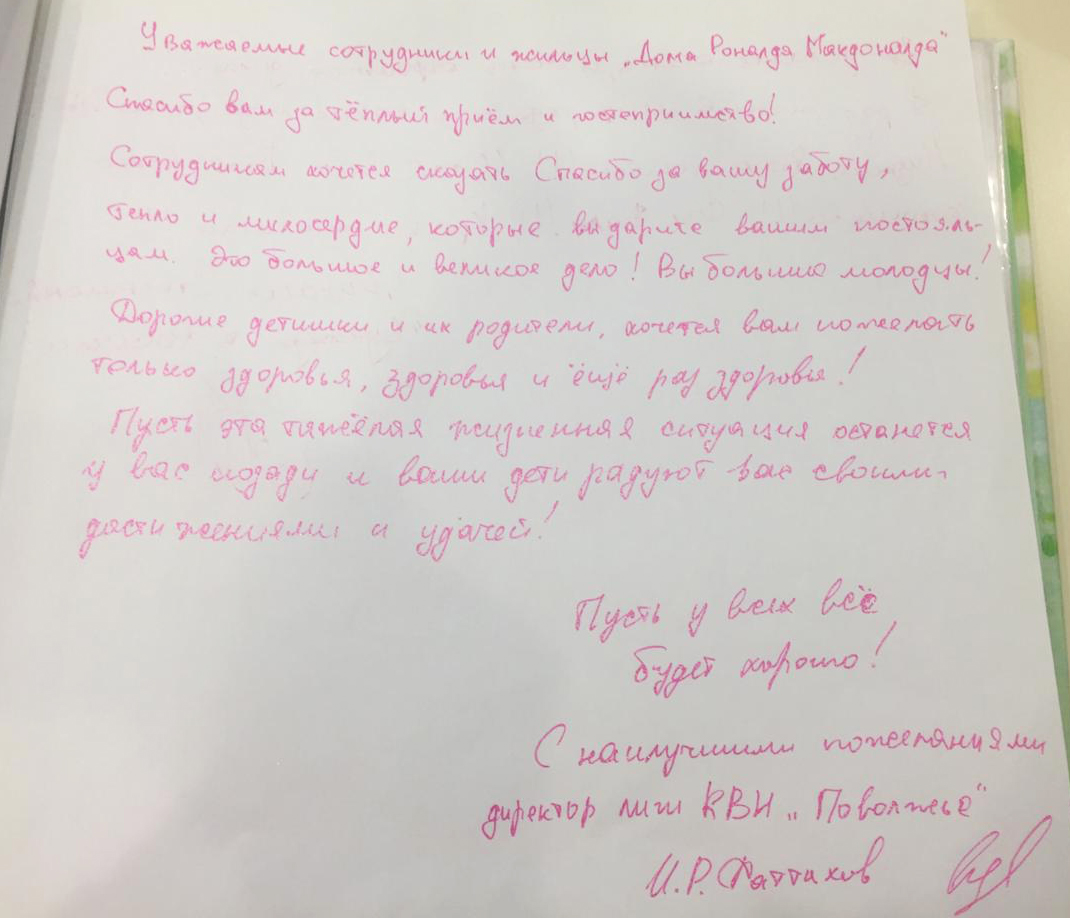 Уважаемые сотрудники и жильцы „Дома Роналда Макдоналда"
Спасибо вам за тёплый приём и гостеприимство!
Сотрудникам хочется сказать Спасибо за вашу заботу,
тепло и милосердие, которые вы дарите вашим постояль-
цам. Это большое и великое дело! Вы большие молодцы!
Дорогие детишки и их родители, хочется вам пожелать
только здоровья, здоровья и ещё раз здоровья!
Пусть эта тяжёлая жизненная ситуация останется
у вас позади и ваши дети радуют вас своими
достижениями и удачей!
Пусть у всех всё
будет хорошо!
С наилучшими пожеланиями
директор лиги КВН „Поволжье"
И.Р. Фаттахов